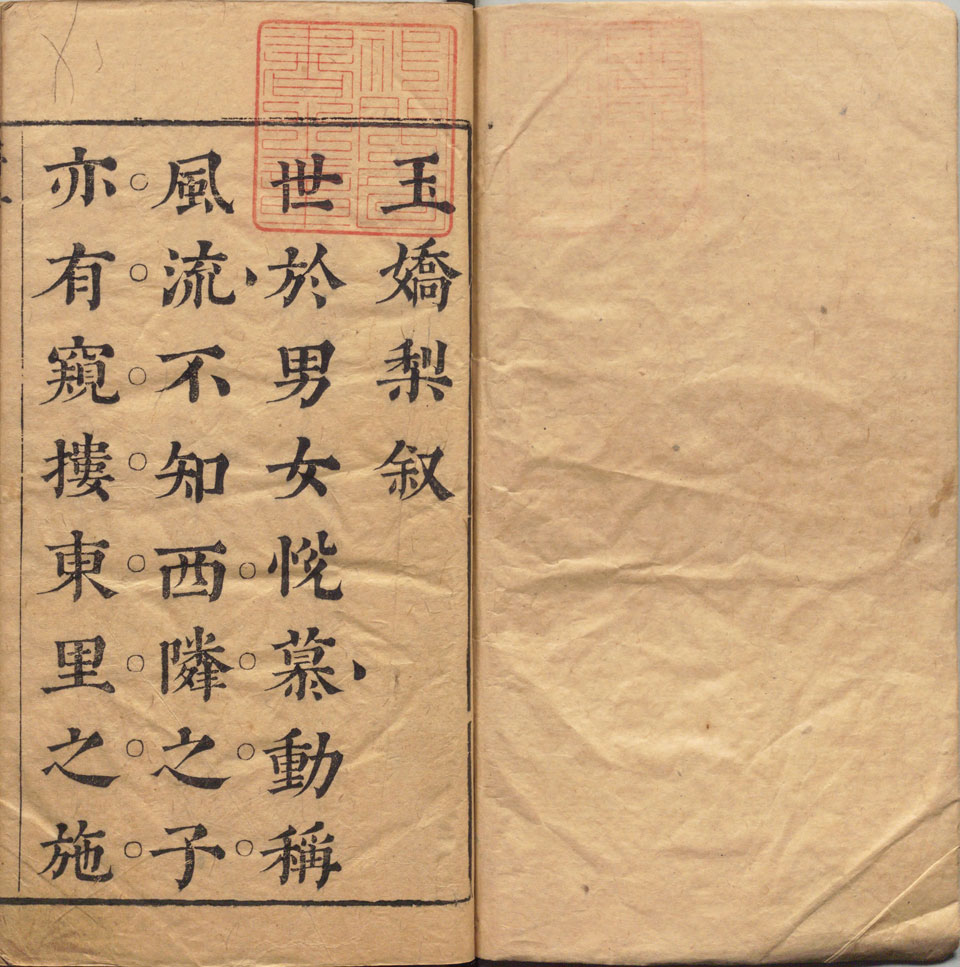 玉嬌梨叙
世於男女悅慕動稱
風流不知西隣之子
亦有窺摟東里之施